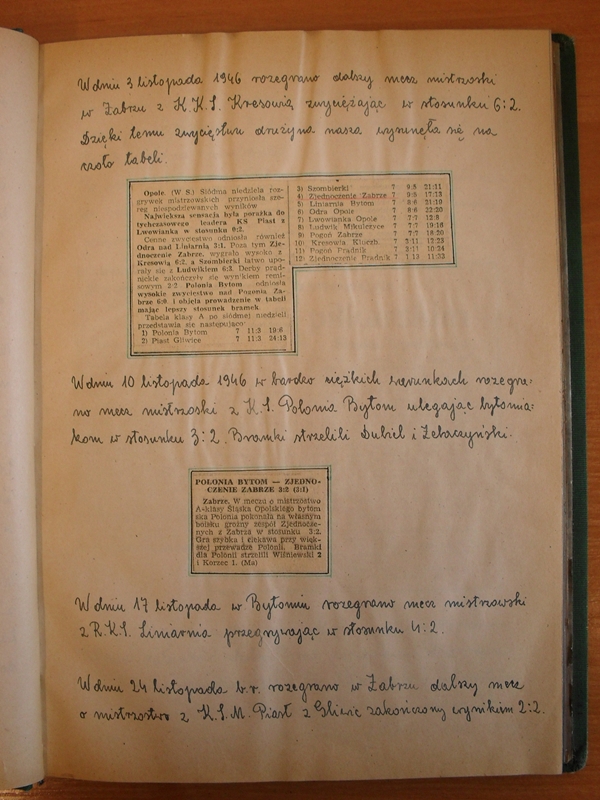 W dniu 3 listopada 1946 rozegrano dalszy mecz mistrzoski
w Zabrzu z K.K.S. Kresovią zwyciężając w stosunku 6:2.
Dzięki temu zwycięstwu drużyna nasza wysunęła się na
czoło tabeli.
Opole. (W S.) Siódma niedziela roz-
grywek mistrzowskich przyniosła sze-
reg niespodziewanych wyników
Największa sensacją była porażka do
tychczasowego leadera KS Piast z
Lwowianką w stosunku 0:2.
Cenne zwycięstwo odniosła również
Odra nad Liniarnią 3:1. Poza tym Zje-
dnoczenie Zabrze, wygrało wysoko z
Kresovią 6:2, a Szombierki łatwo upo-
rały się z Ludwikiem 6:3. Derby prud-
nickie zakończyły się wynikiem remi-
sowym 2:2 Polonia Bytom odniosła
wysokie zwycięstwo nad Pogonią Za-
brze 6:0 i objęła prowadzenie w tabeli
mając lepszy stosunek bramek.
Tabela klasy A po siódmej niedzieli
przedstawia się następująco:
1) Polonia Bytom 7 11:3 19:6
2) Piast Gliwice 7 11:3 24:13
3) Szombierki 7 9:5 21:11
4) Zjednoczenie Zabrze 7 9:5 17:13
5) Liniarnia Bytom 7 8:6 21:19
6) Odra Opole 7 8:6 22:20
7) Lwowianka Opole 7 7:7 12:8
8) Ludwik Mikulczyce 7 7:7 19:16
9) Pogoń Zabrze 7 7:7 18:20
10) Kresowia Kluczb. 7 3:11 12:23
11) Pogoń Prudnik 7 3:11 10:24
12) Zjednoczenie Prudnik 7 1:13 11:33
W dniu 10 listopada 1946 w bardzo ciężkich warunkach rozegra-
no mecz mistrzoski z K.S. Polonia Bytom ulegając bytomia-
kom w stosunku 3:2. Bramki strzelili Dubiel i
POLONIA BYTOM — ZJEDNO-
CZENIE ZABRZE 3:2 (2:1)
Zabrze. W meczu o mistrzostwo
A-klasy Śląska Opolskiego bytom
ska Polonia pokonała na własnym
boisku groźny zespół Zjednocze-
nych z Zabrza w stosunku 3:2.
Gra szybka i ciekawa przy więk-
szej przewadze Polonii. Bramki
dla Polonii strzelili Wiśniewski 2
i Korzec 1. (Ma)
W dniu 17 listopada w Bytomiu rozegrano mecz mistrzowski
z R.K.S. Liniarnia przegrywając w stosunku 4:2.
W dniu 24 listopada b.r. rozegrano w Zabrzu dalszy mecz
o mistrzostwo z K.S.M. Piast z Gliwic zakończony wynikiem 2:2.